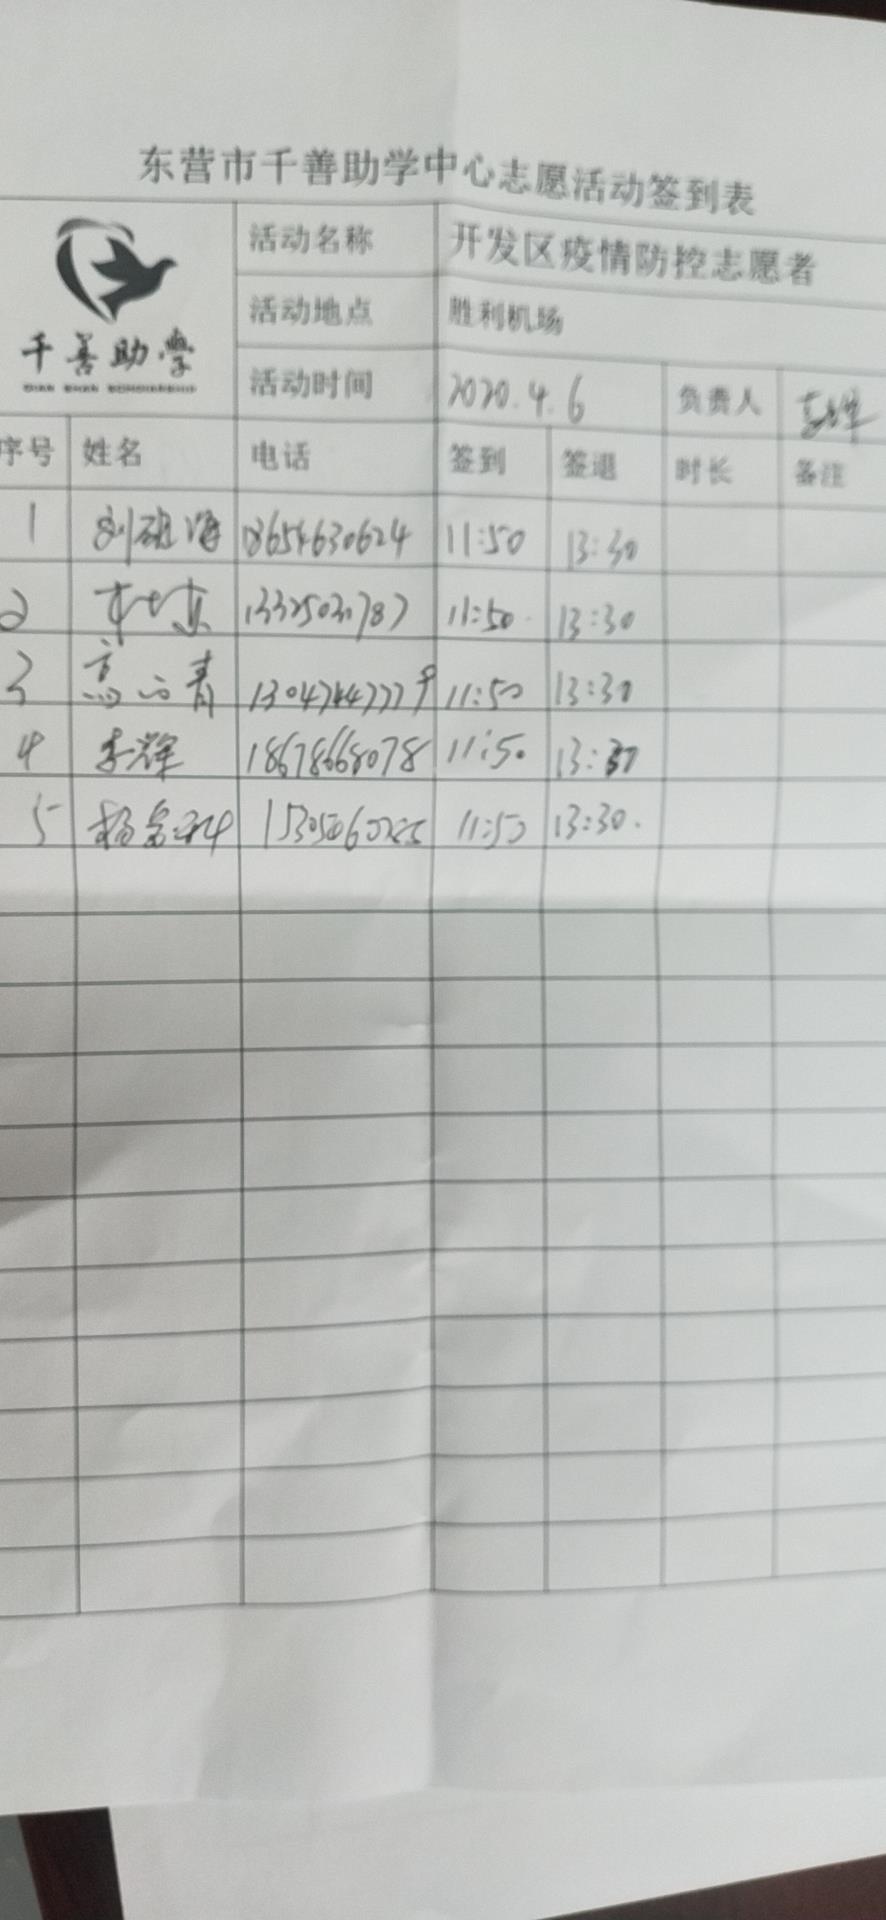 东营市千善助学中心志愿活动签到表
千善助学
QIAN SHAN SCHOLARSHIP
活动名称 开发区疫情防控志愿者
活动地点 胜利机场
活动时间 2020.4.6 负责人
序号 姓名 电话 签到 签退 时长 备注
1 刘 海 18654630624 11:50 13:30
2 11:50 13:30
3 高 青 11:50 13:30
4 李辉 18678668078 11:50 13:30
5 杨 11:50 13:30.